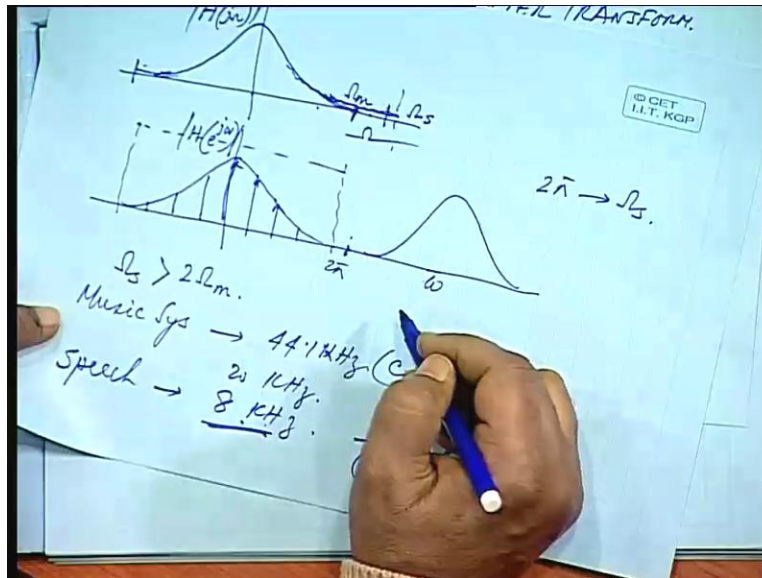 TRANSFORM.
|H(jΩ)|
Ωm
Ωs
Ω
© CET
I.I.T. KGP
|H(e^jω)|
2π → Ωs.
2π
ω
Ωs > 2Ωm.
Music Sys → 44.1 KHz (C
20 KHz.
Speech → 8 KHz.